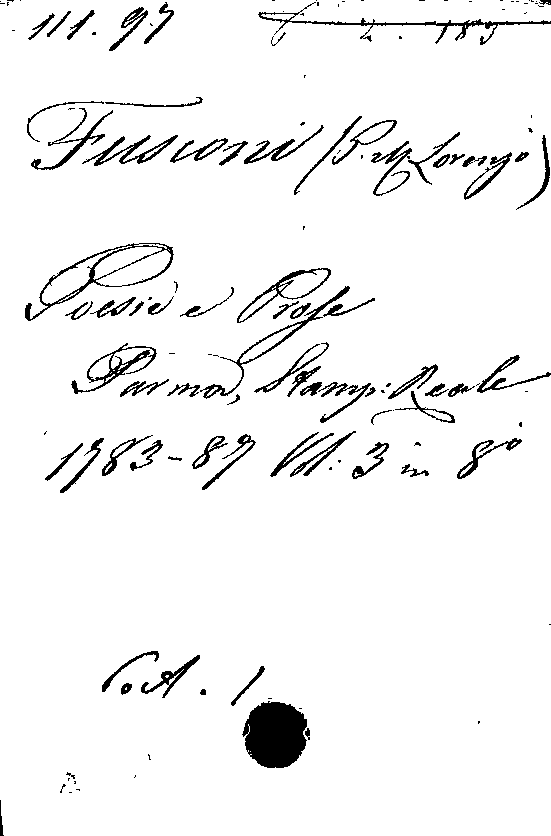 111.97
Fusconi (P. M. Lorenzo)
Poesie e Prose
Parma, Stamp: Reale
1783-87 Vol: 3 in 8º